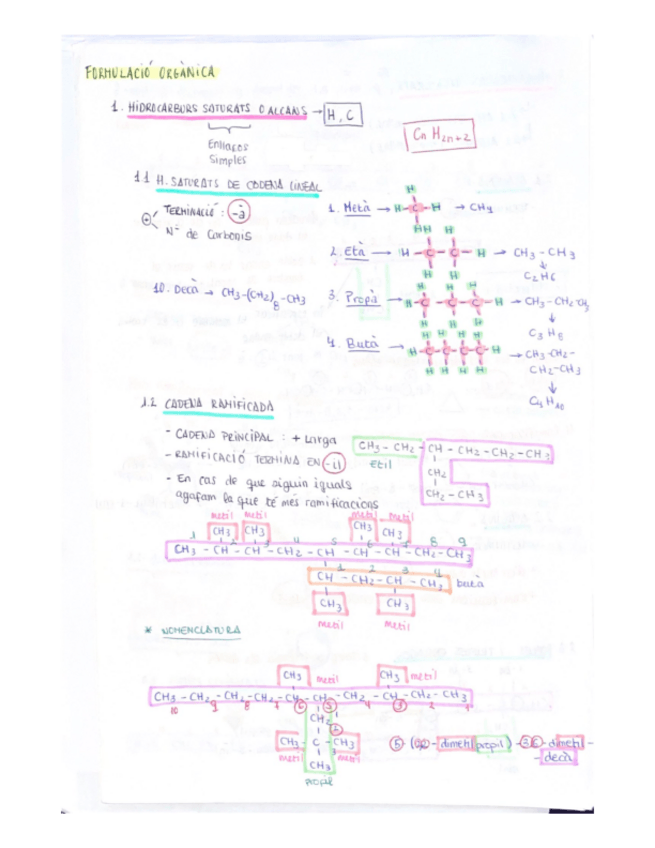 FORMULACIÓ ORGÀNICA
1. HIDROCARBURS SATURATS O ALCANS → H, C
Cn H2n+2
Enllaços
Simples
1.1 H. SATURATS DE CADENA LINEAL
TERMINACIÓ: -à
Nº de Carbonis
10. Decà → CH3-(CH2)8-CH3
H
1. Metà → H-C-H → CH4
H H H
2. Età → H - C - C - H → CH3 - CH3
H H
C2H6
H H H
3. Propà → H-C-C-C-H → CH3-CH2-CH3
H H H
C3H8
H H H H
4. Butà → H-C-C-C-C-H → CH3-CH2-
CH2-CH3
H H H H
C4H10
1.2 CADENA RAMIFICADA
- CADENA PRINCIPAL: + Llarga
- RAMIFICACIÓ TERMINA EN -il
- En cas de que siguin iguals
agafam la que té més ramificacions
CH3 - CH2 - CH - CH2 - CH2 - CH3
etil
CH2
CH2 - CH3
metil metil metil metil
CH3 CH3 CH3 CH3
1 2 3 4 5 6 7 8 9
CH3 - CH - CH - CH2 - CH - CH - CH - CH2 - CH3
1 2 3 4
CH - CH2 - CH - CH3 butà
CH3 CH3
metil metil
* NOMENCLATURA
CH3 metil CH3 metil
CH3 - CH2 - CH2 - CH2 - CH - CH - CH2 - CH - CH2 - CH3
10 9 8 7 6 5 4 3 2 1
CH2 1
2
CH3 - C - CH3
metil 3 metil
CH3
propil
5 (2,2 - dimetil propil) - 3,6 - dimetil -
- decà